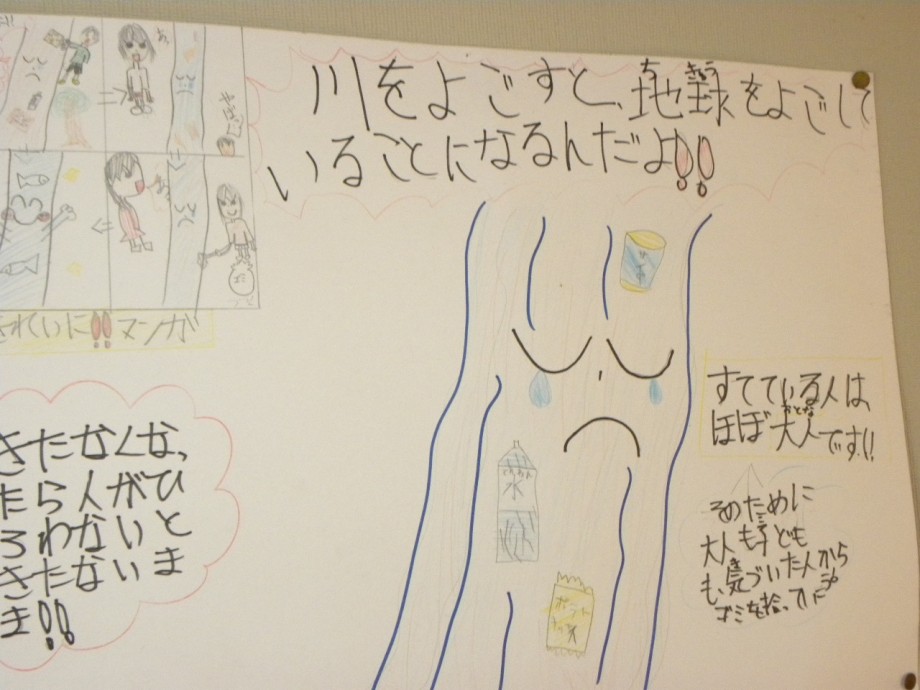 川をよごすと、地録をよごして
いることになるんだよ!!
きれいに!!マンガ
きたなくなっ
たら人がひ
ろわないと
きたないま
ま!!
すてている人は、
ほぼ大人です!!
おとな
そのために
大人も子ども
も、気づいた人から
ゴミを拾って
水